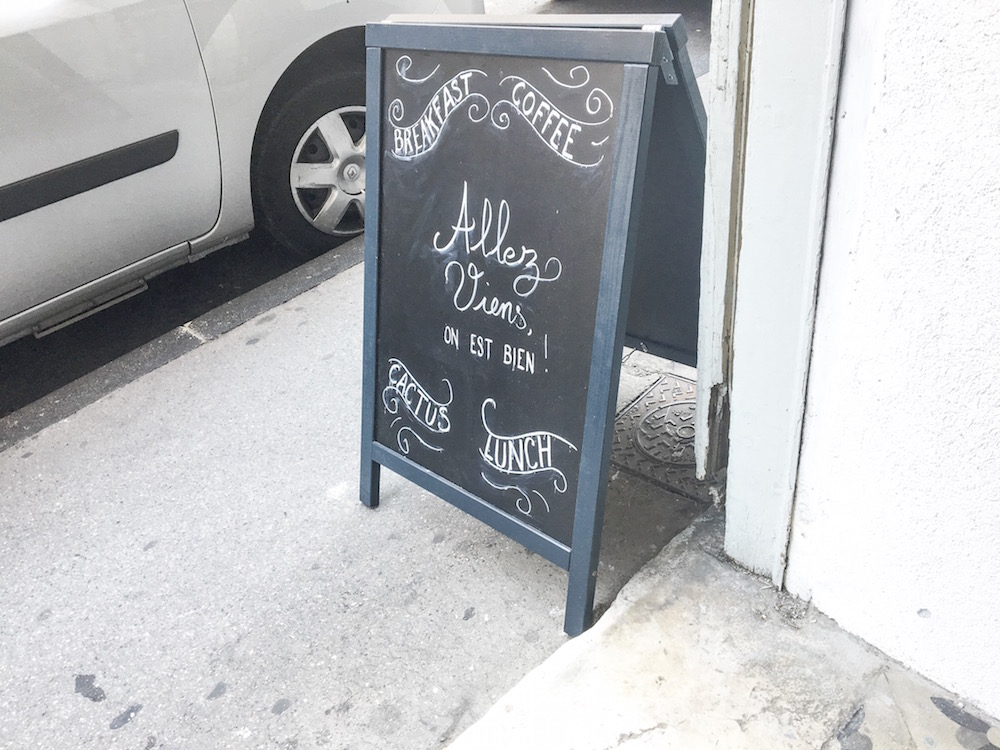 BREAKFAST
COFFEE
Allez
Viens,
ON EST BIEN !
CACTUS
LUNCH